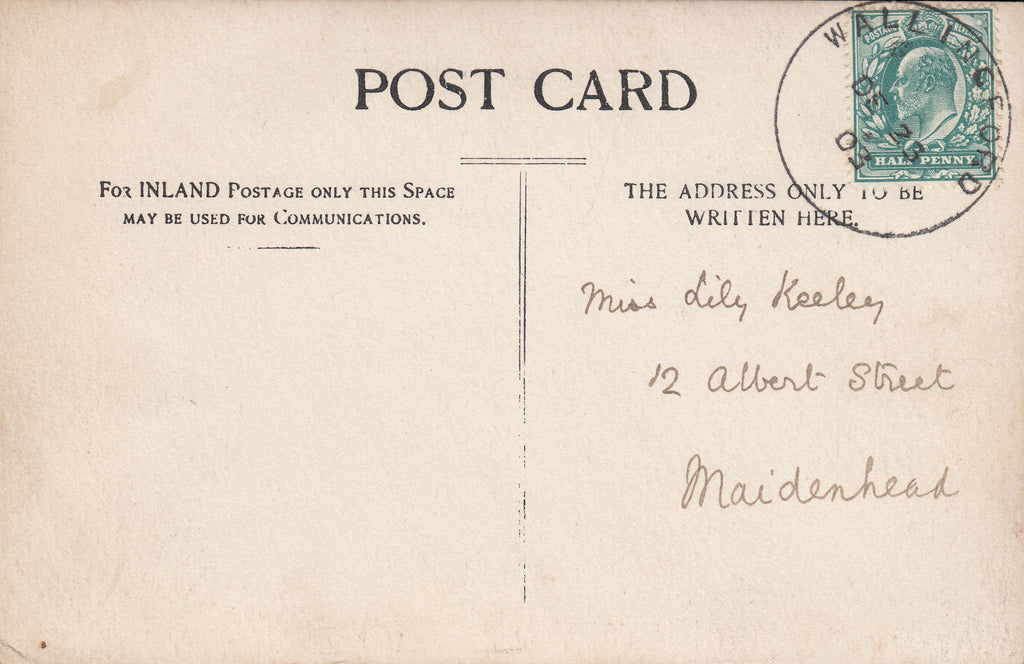 POST CARD
WALLINGFORD
DE 23
03
POSTAGE
HALF PENNY
FOR INLAND POSTAGE ONLY THIS SPACE
MAY BE USED FOR COMMUNICATIONS.
THE ADDRESS ONLY TO BE
WRITTEN HERE.
Miss Lily Keeley
12 Albert Street
Maidenhead